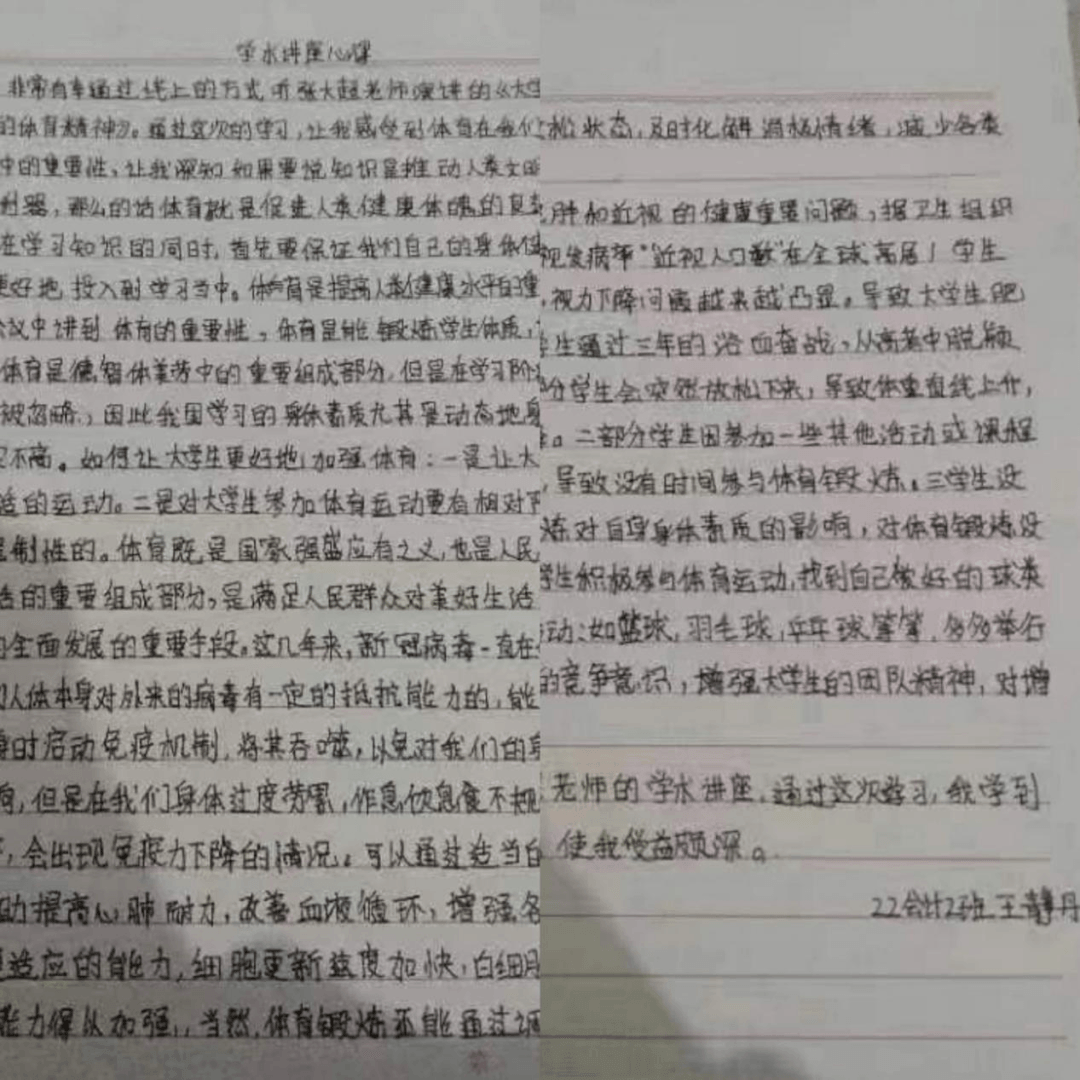 学术讲座心得
非常有幸通过线上的方式听张大超老师演讲的《大学
的体育精神》。通过这次的学习，让我感受到体育在我们
中的重要性，让我深知如果要说知识是推动人类文明
利器，那么的话体育就是促进人类健康体魄的
在学习知识的同时，首先要保证我们自己的身体健
更好地投入到学习当中。体育是提高人类健康水平的重
会议中讲到体育的重要性。体育是能锻炼学生体质，
体育是德智体美劳中的重要组成部分，但是在学习阶
被忽略，因此我国学习的身体素质尤其是动态地身
不高。如何让大学生更好地加强体育：一是让大
适的运动。二是对大学生参加体育运动要有相对
强制性的。体育既是国家强盛应有之义，也是人民
活的重要组成部分。是满足人民群众对美好生活
的全面发展的重要手段。这几年来，新冠病毒一直在
人体本身对外来的病毒有一定的抵抗能力的，能
时启动免疫机制，将其吞噬，以免对我们的身
响，但是在我们身体过度劳累，作息饮息食不规
，会出现免疫力下降的情况。可以通过适当的
助提高心肺耐力，改善血液循环，增强各
适应的能力，细胞更新速度加快，白细胞
能力得以加强，当然，体育锻炼还能通过调
松状态，及时化解消极情绪，减少各类
肥胖和近视的健康重要问题，据卫生组织
视发病率"近视人口数"在全球高居1学生
，视力下降问题越来越凸显。导致大学生肥
学生通过三年的浴血奋战，从高考中脱颖
分学生会突然放松下来，导致体重直线上升，
。二部分学生因参加一些其他活动或课程
，导致没有时间参与体育锻炼。三学生没
炼对自身身体素质的影响，对体育锻炼没
学生积极参与体育运动，找到自己做好的球类
动：如篮球，羽毛球，乒乓球等等，多多举行
的竞争意识，增强大学生的团队精神，对增
老师的学术讲座，通过这次学习，我学到
使我受益颇深。
22会计2班 王静丹